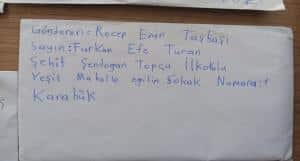 Gönderen: Recep Eren Taşbaşı
Sayın: Furkan Efe Turan
Şehit Şerdoğan Topçu İlkokulu
Yeşil Mahalle Sokak Numara:
Karabük